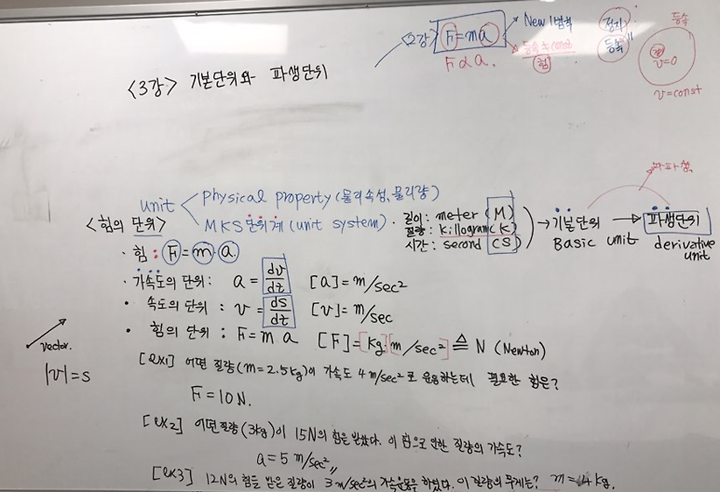 2강 F=ma New 1법칙 정지 등속
등속 ≠ const 등속" v=0
F α a. 힘
v=const
<3강> 기본단위와 파생단위
unit physical property (물리속성, 물리량)
MKS 단위계 (unit system). 길이: meter (M) → 기본단위 → 파생단위
질량: killogram (K) Basic unit derivative unit
시간: second (S)
<힘의 단위>
· 힘: F=m·a
· 가속도의 단위: a = dv/dt [a]=m/sec²
· 속도의 단위: v = ds/dt [v]=m/sec
· 힘의 단위: F=ma [F]=[kg][m/sec²] ≜ N (Newton)
vector.
|v|=s
[ex1] 어떤 질량(m=2.5kg)이 가속도 4m/sec²로 운동하는데 필요한 힘은?
F=10N.
[ex2] 어떤질량(3kg)이 15N의 힘을 받았다. 이 힘으로 인한 질량의 가속도?
a=5m/sec²
[ex3] 12N의 힘을 받은 질량이 3m/sec²의 가속운동을 하였다. 이 질량의 무게는? m=4kg.